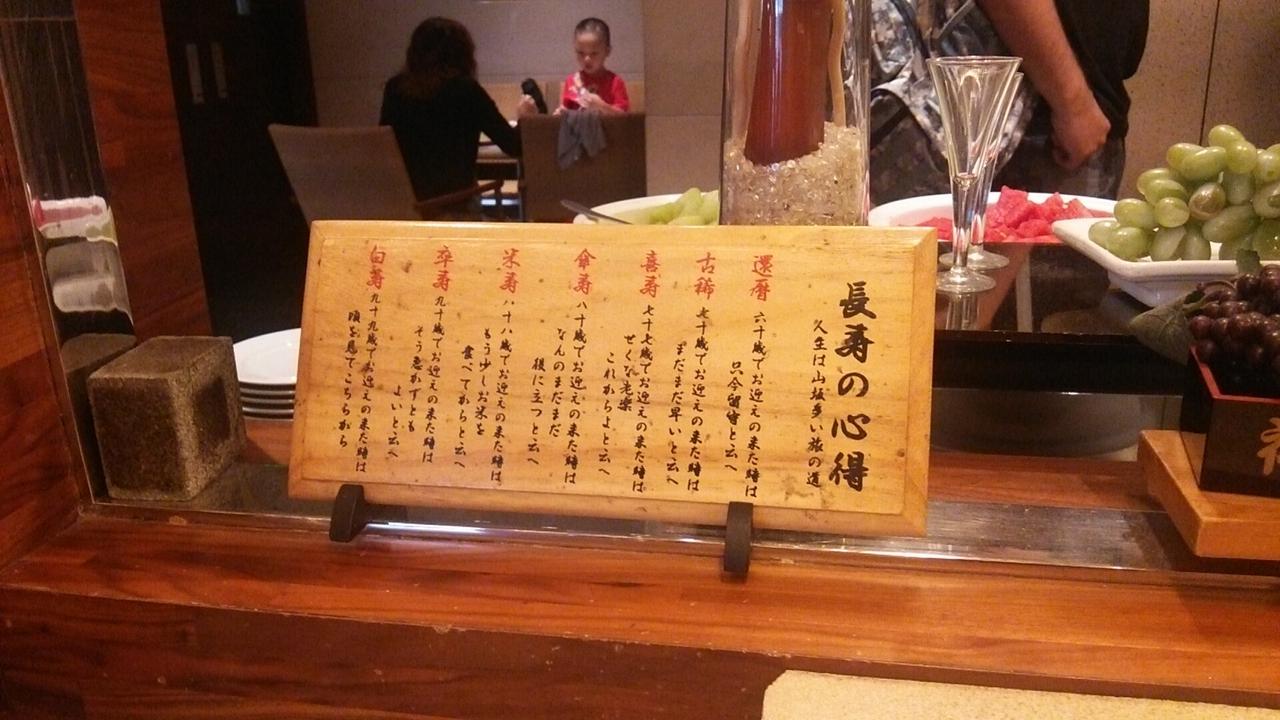 長寿の心得
人生は山坂多い旅の道
還暦 六十歳でお迎えの来た時は
只今留守と云へ
古稀 七十歳でお迎えの来た時は
まだまだ早いと云へ
喜寿 七十七歳でお迎えの来た時は
せくな老楽
これからよと云へ
傘寿 八十歳でお迎えの来た時は
なんのまだまだ
役に立つと云へ
米寿 八十八歳でお迎えの来た時は
もう少しお米を
食べてからと云へ
卒寿 九十歳でお迎えの来た時は
そう急がずとも
よいと云へ
白寿 九十九歳でお迎えの来た時は
頃を見てこちらから